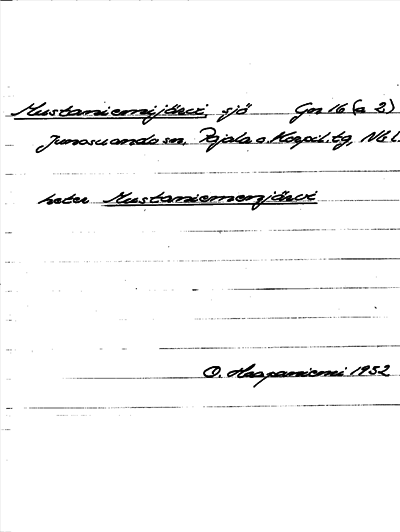 Mustaniemijärvi, sjö Gn 16 (a 2)
Junosuando sn, Pajala o. Korpil. tg, Nb l.
heter Mustaniemenjärvi
O. Haapaniemi 1952